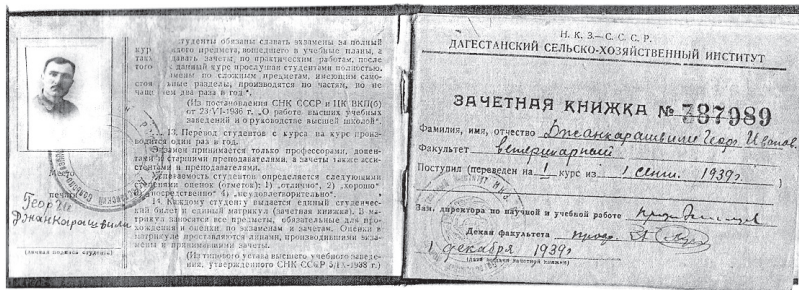 туденты обязаны сдавать экзамены за полный
кур дого предмета, вошедшего в учебные планы, а
такж давать зачеты, по практическим работам, после
того данный курс прослушан студентами полностью.
амены по сложным предметам, имеющим самос-
тояльные разделы, производятся по частям, но не
чаще чем два раза в год".
(Из постановления СНК СССР и ЦК ВКП(б)
от 23/VI-1936 г. „О работе высших учебных
заведений и о руководстве высшей школой".
13. Перевод студентов с курса на курс произ-
водится один раз в год.
Экзамен принимается только профессорами, доцен-
тами и старшими преподавателями, а зачеты также асси-
стентами и преподавателями.
Место
Успеваемость студентов определяется следующими
оценок (отметок): 1) „отлично", 2) „хорошо"
печ
посредственно", 4) „неудовлетворительно".
14. Каждому студенту выдается единый студенческий
билет и единая матрикул (зачетная книжка). В ма-
трикул заносятся все предметы, обязательные для про-
хождения и оценки, по экзаменам и зачетам. Оценки в
матрикуле проставляются лицами, производившими экза-
мены и принимавшими зачеты.
(Из типового устава высшего учебного заведе-
ния, утвержденного СНК СССР 5/IX-1938 г.)
Георгий
Джанкарашвили
(личная подпись студента)
Н. К. З.—С. С. С. Р.
ДАГЕСТАНСКИЙ СЕЛЬСКО-ХОЗЯЙСТВЕННЫЙ ИНСТИТУТ
ЗАЧЕТНАЯ КНИЖКА № 737989
Фамилия, имя, отчество Джанкарашвили Георг. Иванов.
Факультет ветеринарный
Поступил (переведен на 1 курс из 1 сент. 1939 г.
Зам. директора по научной и учебной работе
Декан факультета проф.
1 декабря 1939 г.
(дата выдачи зачетной книжки)